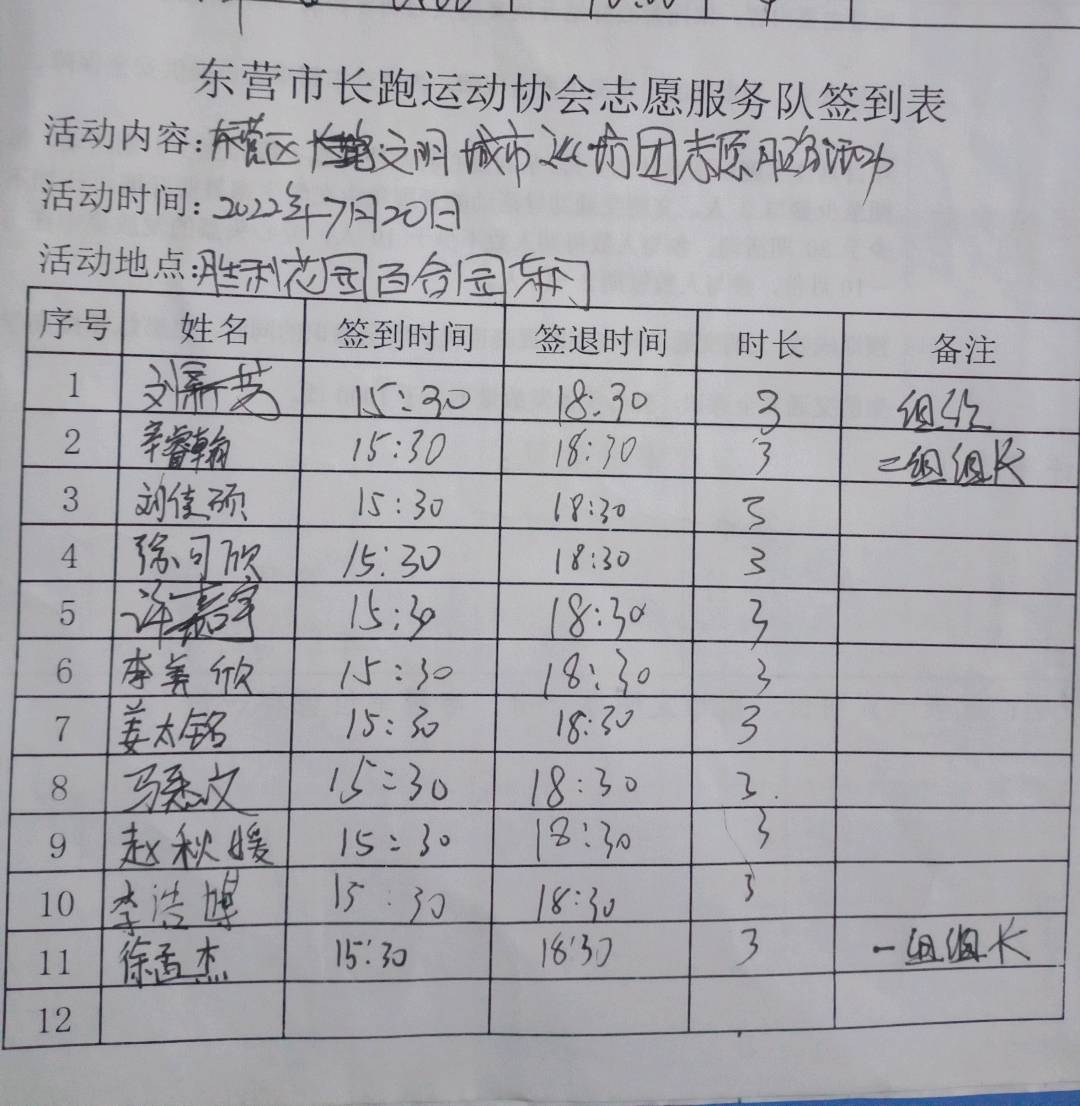 东营市长跑运动协会志愿服务队签到表
活动内容:东营区文明城市巡访团志愿服务活动
活动时间:2022年7月20日
活动地点:胜利花园百合园东门
序号 姓名 签到时间 签退时间 时长 备注
1 刘新芳 15:30 18:30 3
2 辛睿翰 15:30 18:30 3 二组组长
3 刘佳硕 15:30 18:30 3
4 徐可欣 15:30 18:30 3
5 许嘉宇 15:30 18:30 3
6 李美欣 15:30 18:30 3
7 姜太铭 15:30 18:30 3
8 马悉文 15:30 18:30 3
9 赵秋媛 15:30 18:30 3
10 李浩博 15:30 18:30 3
11 徐孟杰 15:30 18:30 3 一组组长
12